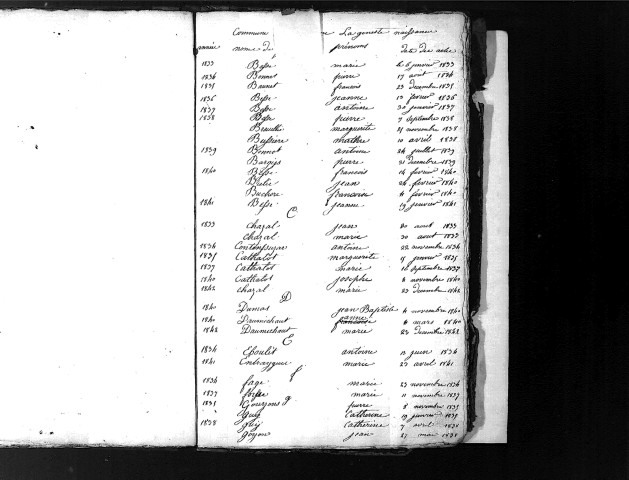 Commune La geneste naissance
année nom de prénoms date des actes
1833 Besse marie le 6 janvier 1833
1834 Bonnet pierre 17 août 1834
1835 Brunet francois 23 decembre 1835
1836 Besse jeanne 13 fevrier 1836
1837 Besse antoine 30 janvier 1837
1838 Besse pierre 7 septembre 1838
marguerite 21 novembre 1838
Bussiere 10 avril 1838
1839 Bonnet antoine 24 juillet 1839
pierre 31 decembre 1839
1840 Besse francois 14 fevrier 1840
jean 24 fevrier 1840
francoise 4 fevrier 1840
1841 Besse jeanne 19 janvier 1841
C
1833 Chazal jean 20 août 1833
Chazal marie 30 août 1833
1834 antoine 22 novembre 1834
1835 Cathalot marguerite 11 janvier 1835
1837 Cathalot marie 10 septembre 1837
1840 Cathalot josephe 8 novembre 1840
1842 Chazal marie 23 decembre 1842
D
1840 Dumas jean Baptiste 4 novembre 1840
1840 Daumechout 8 mars 1840
1842 Daumechout marie 23 decembre 1842
E
1834 antoine 12 juin 1834
1841 Entraygues marie 27 avril 1841
f
1834 fage marie 23 novembre 1834
1837 marie 11 novembre 1837
g
1835 pierre 8 novembre 1835
Guy Catherine 19 janvier 1835
1838 guy Catherine 7 avril 1838
goyon jean 27 mai 1838